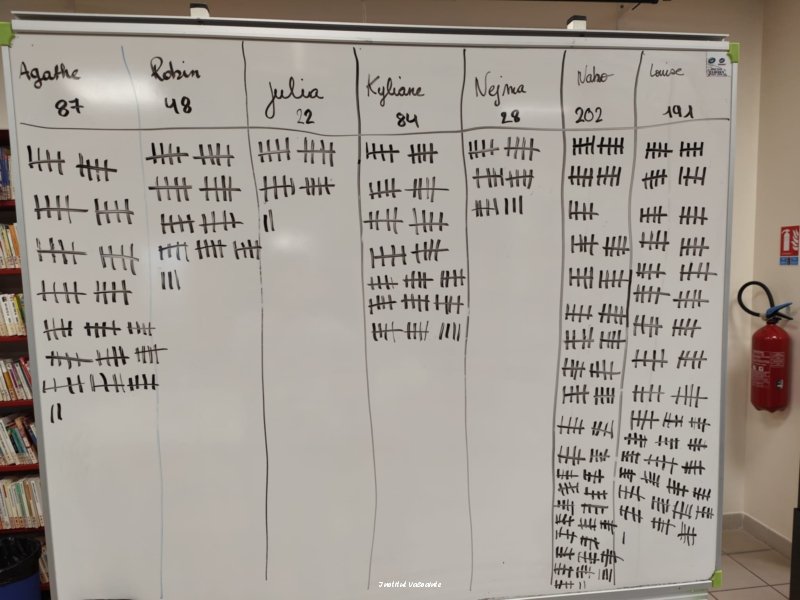 Agathe
87
Robin
48
Julia
22
Kyliane
84
Nejma
28
Naho
202
Louise
191
Institut Vatelante